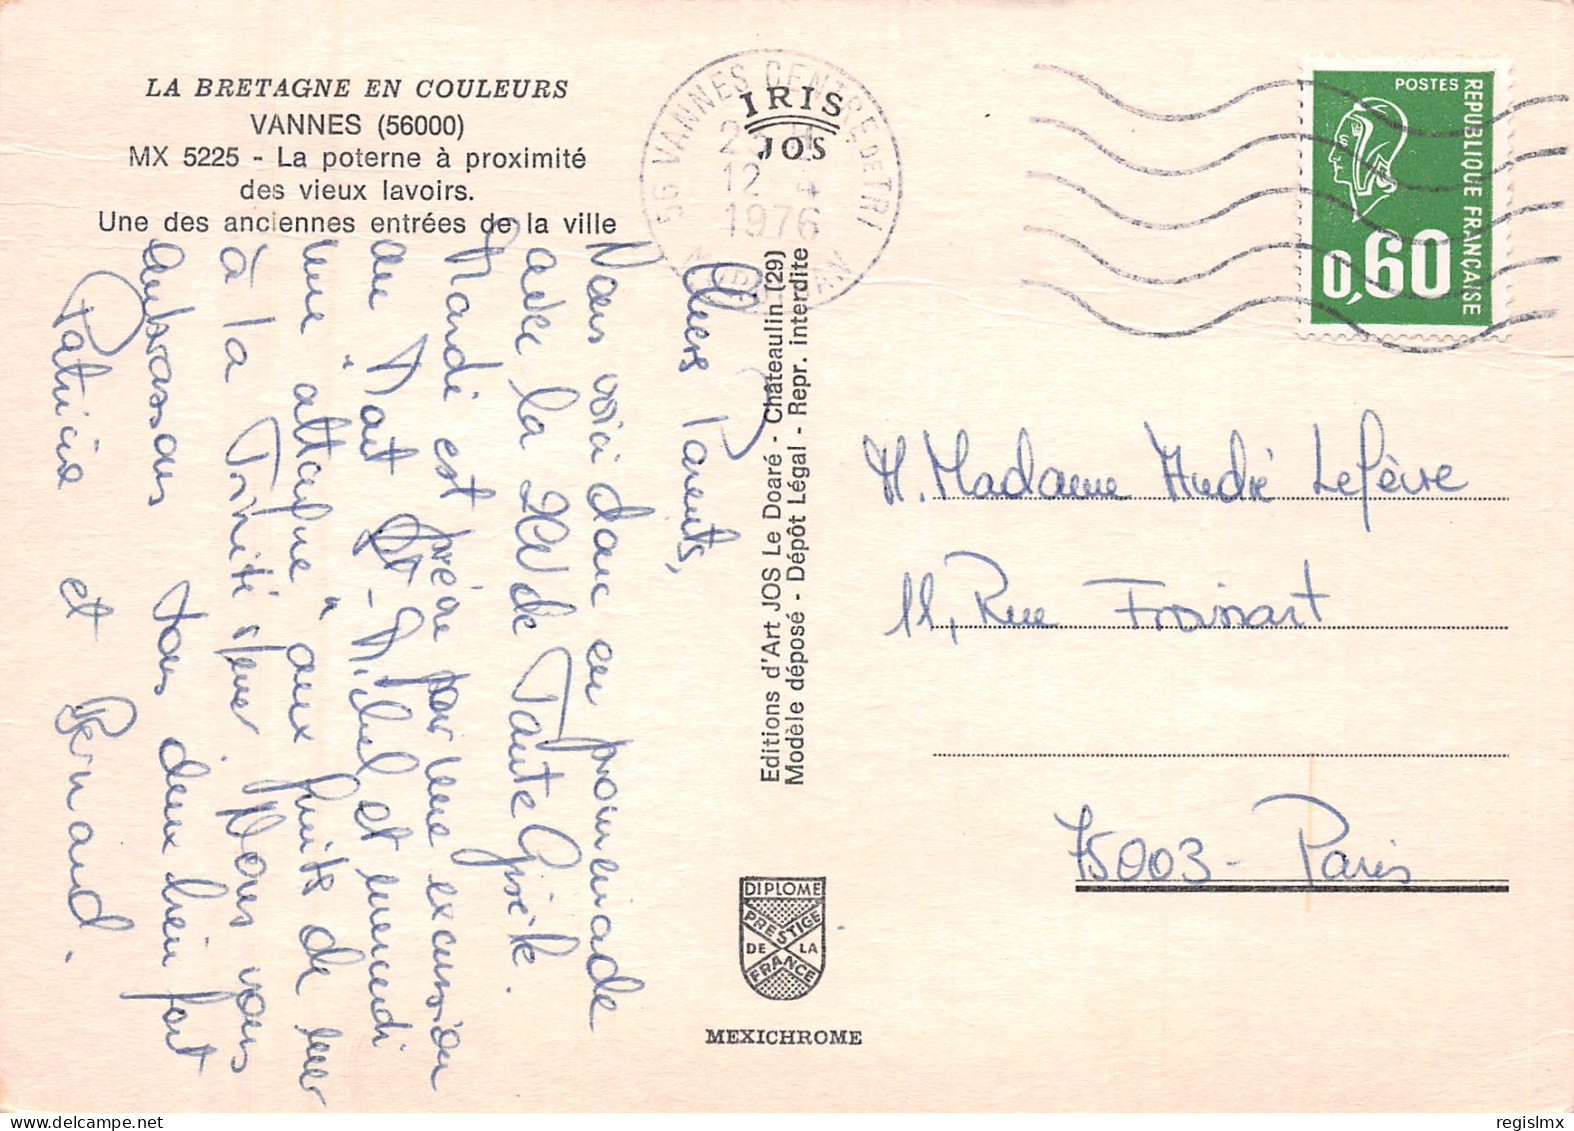 LA BRETAGNE EN COULEURS
VANNES (56000)
MX 5225 - La poterne à proximité
des vieux lavoirs.
Une des anciennes entrées de la ville
Chers Parents,
Nous voici donc en promenade
avec la 2CV de Tante Gisèle.
Mardi est prévu pour une excursion
au Mont St-Michel et mercredi
une "attaque" aux fruits de mer
à la Trinité s/mer. Nous vous
embrassons tous deux bien fort
Patricia et Bernard.
IRIS
JOS
56 VANNES CENTRE DE TRI
MORBIHAN
12 - 4
1976
Editions d'Art JOS Le Doaré - Châteaulin (29)
Modèle déposé - Dépôt Légal - Repr. interdite
DIPLOME
PRESTIGE
DE LA
FRANCE
MEXICHROME
POSTES
REPUBLIQUE FRANÇAISE
0,60
M. Madame André Lefèvre
11, Rue Froissart
75003 - Paris
regislmx